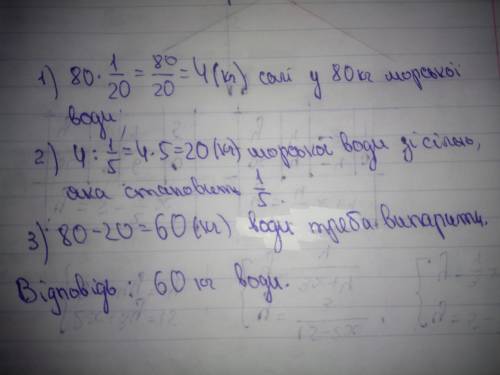 1) 80 · 1/20 = 80/20 = 4 (кг) солі у 80 кг морської
води;
2) 4 : 1/5 = 4 · 5 = 20 (кг) морської води зі сіллю,
яка становить 1/5.
3) 80 - 20 = 60 (кг) води треба випарити.
Відповідь: 60 кг води.